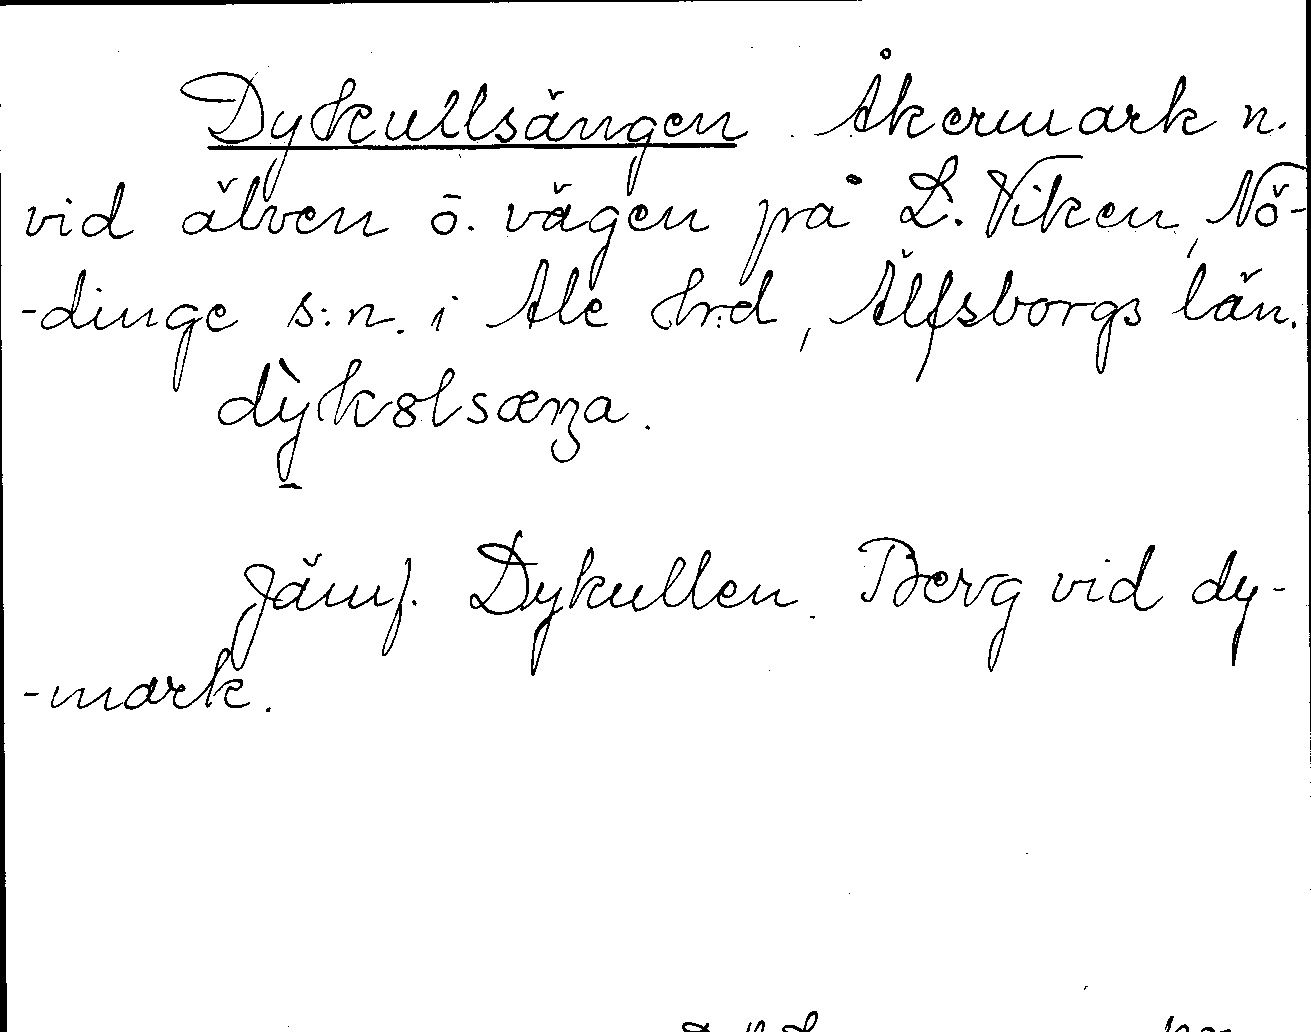 Dykullsängen. Åkermark n.
vid älven ö. vägen på L. Viken, Nö-
-dinge s:n. i Ale hrd, Älfsborgs län.
dỳkɷlsæŋa.
Jämf. Dykullen. Berg vid dy-
-mark.